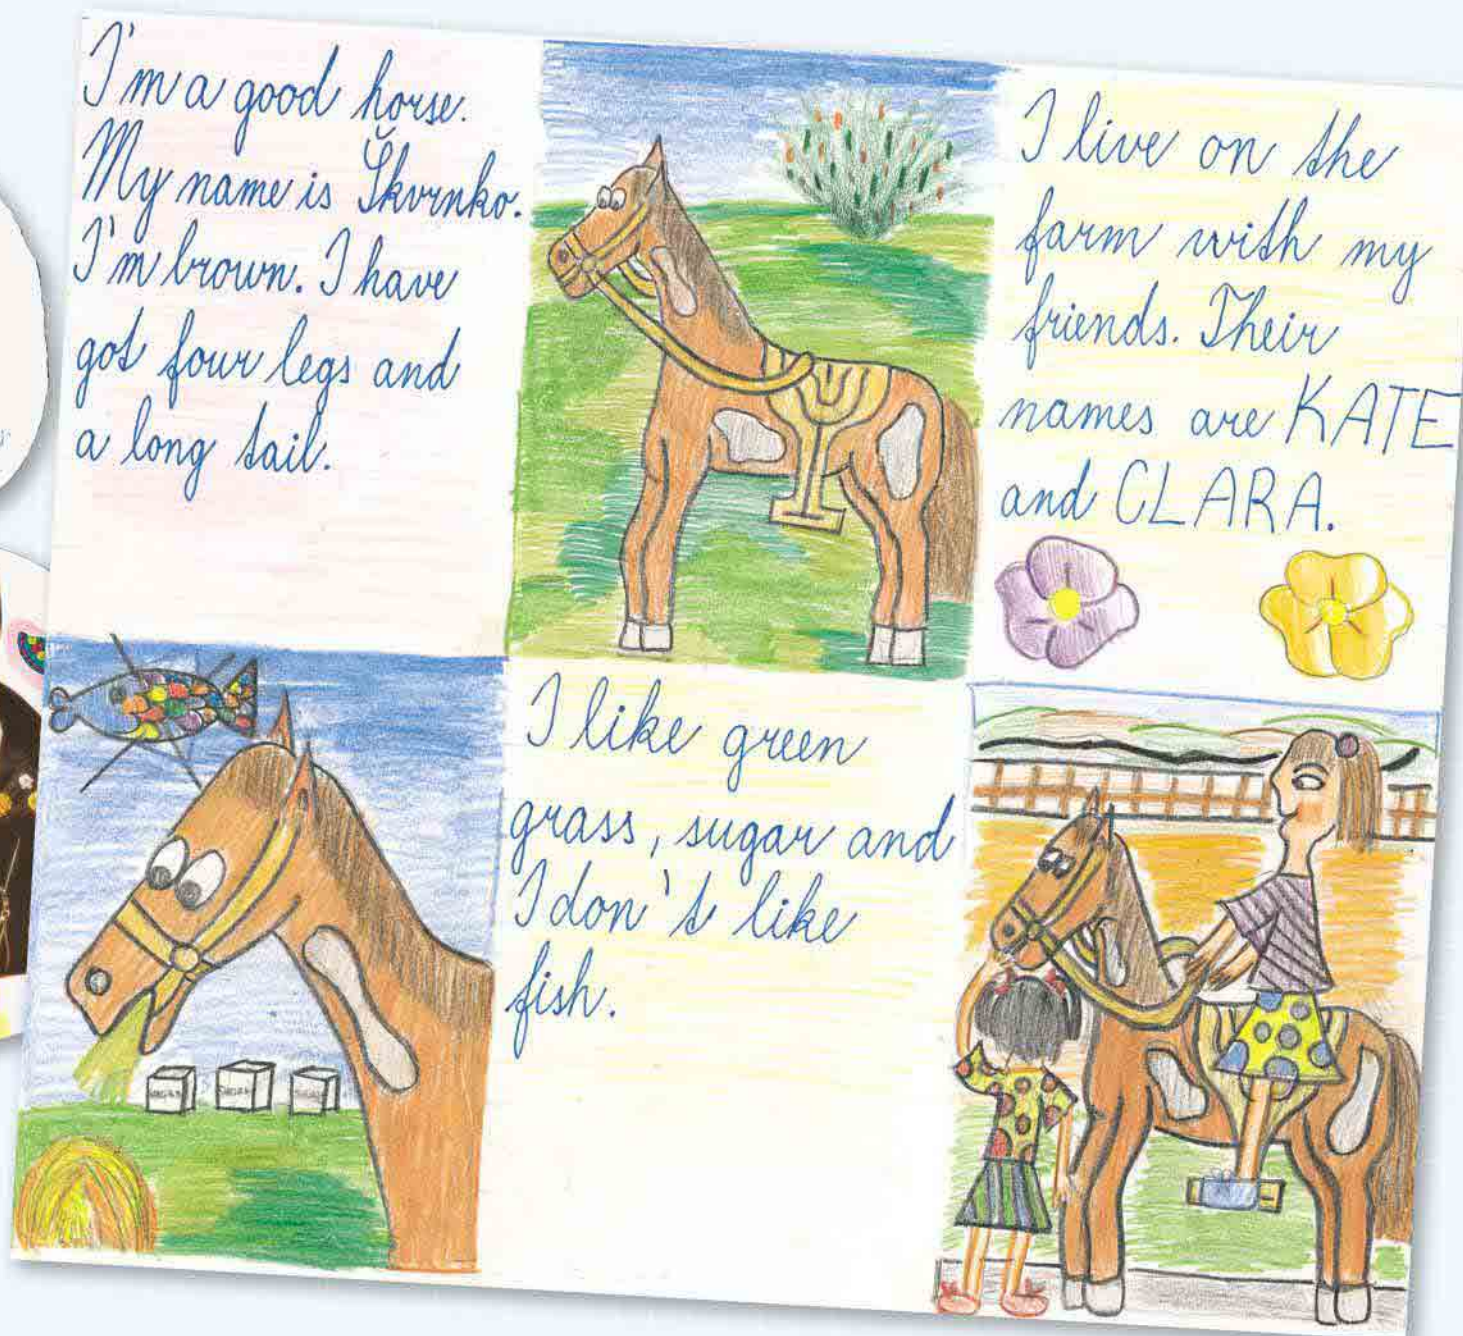 I'm a good horse.
My name is Škvrnko.
I'm brown. I have
got four legs and
a long tail.
I live on the
farm with my
friends. Their
names are KATE
and CLARA.
I like green
grass, sugar and
I don't like
fish.